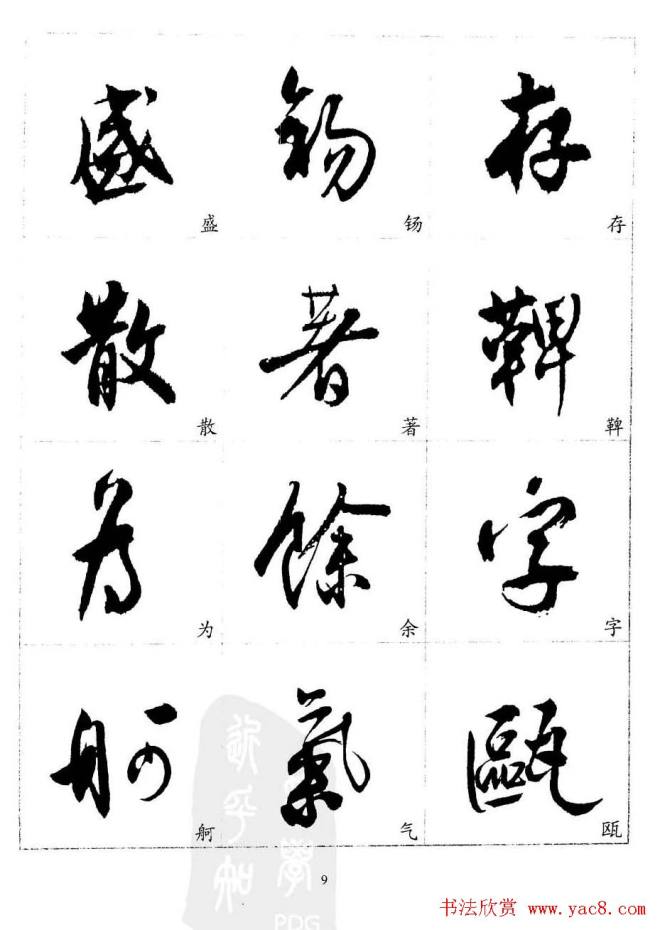 盛 錫 存
盛 钖 存
散 著 鞞
散 著 鞞
为 餘 字
为 余 字
舸 氣 甌
舸 气 瓯
9
PDG
书法欣赏 www.yac8.com